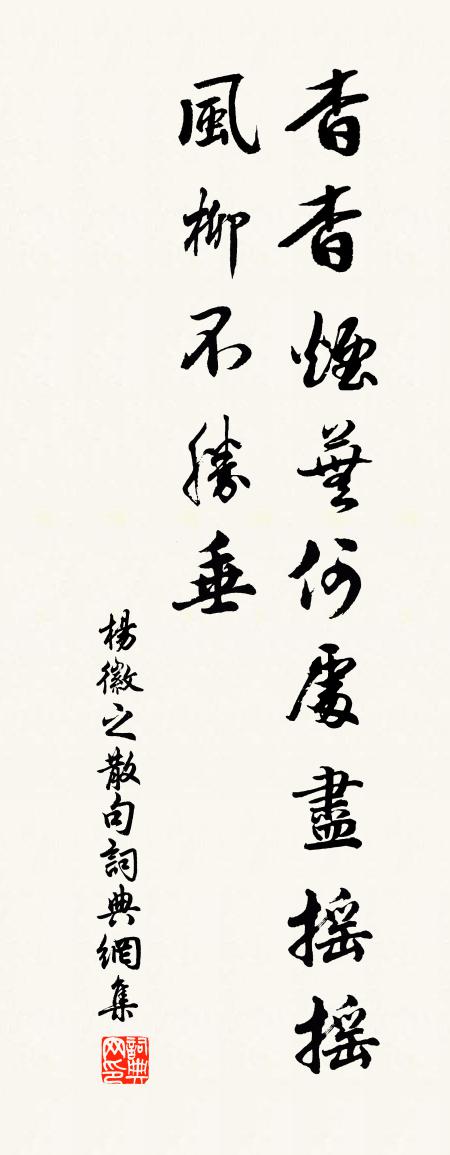 杳杳煙蕪何處盡搖搖
風柳不勝垂
楊徽之散句詞典網集
詞典网印